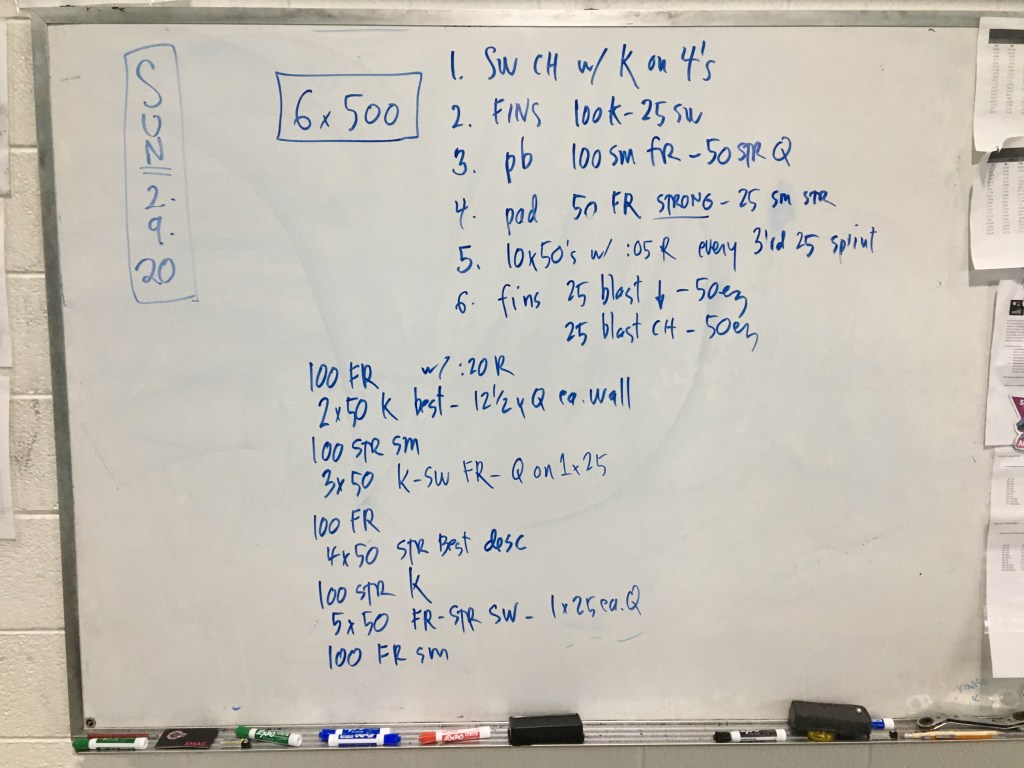 SUN
2.
9.
20
6x500
1. SW CH w/ K on 4's
2. FINS 100K-25 SW
3. pb 100 sm fR - 50 STR Q
4. pad 50 FR STRONG - 25 sm STR
5. 10x50's w/ :05 R every 3'rd 25 sprint
6. fins 25 blast ↓ - 50ez
25 blast CH - 50ez
100 FR w/ :20 R
2x50 K best - 12 1/2 y Q ea. wall
100 STR sm
3x50 K-SW FR- Q on 1x25
100 FR
4x50 STR Best desc
100 STR K
5x50 FR-STR SW - 1x25 ea. Q
100 FR sm